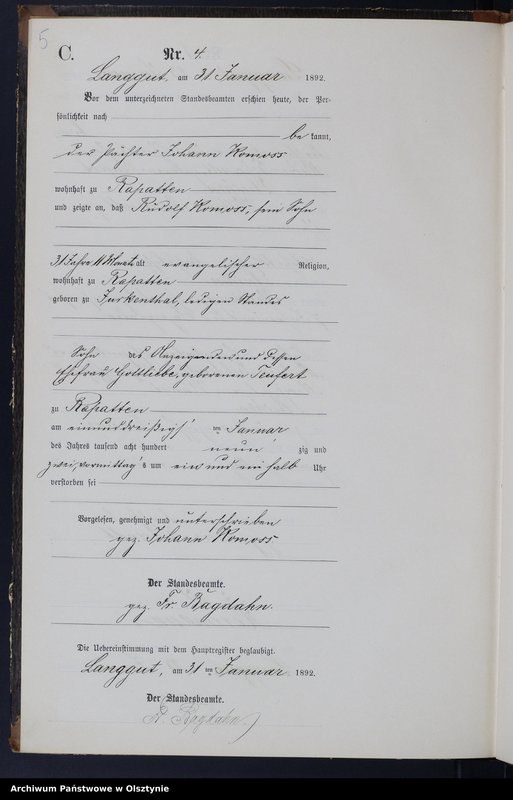 5
C.
Nr. 4.
Langgut, am 31 Januar 1892.
Vor dem unterzeichneten Standesbeamten erschien heute, der Per-
sönlichkeit nach
be kannt,
der Pächter Johann Komoss
wohnhaft zu Rapatten
und zeigte an, daß Rudolf Komoss, sein Sohn
31 Jahre 11 Monate alt evangelischer Religion,
wohnhaft zu Rapatten
geboren zu Jurkenthal, ledigen Standes
Sohn des Anzeigenden und dessen
Ehefrau Gottliebe, geborenen Teufert
zu Rapatten
am einunddreißigsten Januar
des Jahres tausend acht hundert neun zig und
zwei, vormittags um ein und ein halb Uhr
verstorben sei
Vorgelesen, genehmigt und unterschrieben
gez. Johann Komoss
Der Standesbeamte.
gez. Fr. Bagdahn.
Die Uebereinstimmung mit dem Hauptregister beglaubigt.
Langgut, am 31 ten Januar 1892.
Der Standesbeamte.
Fr. Bagdahn
Archiwum Państwowe w Olsztynie